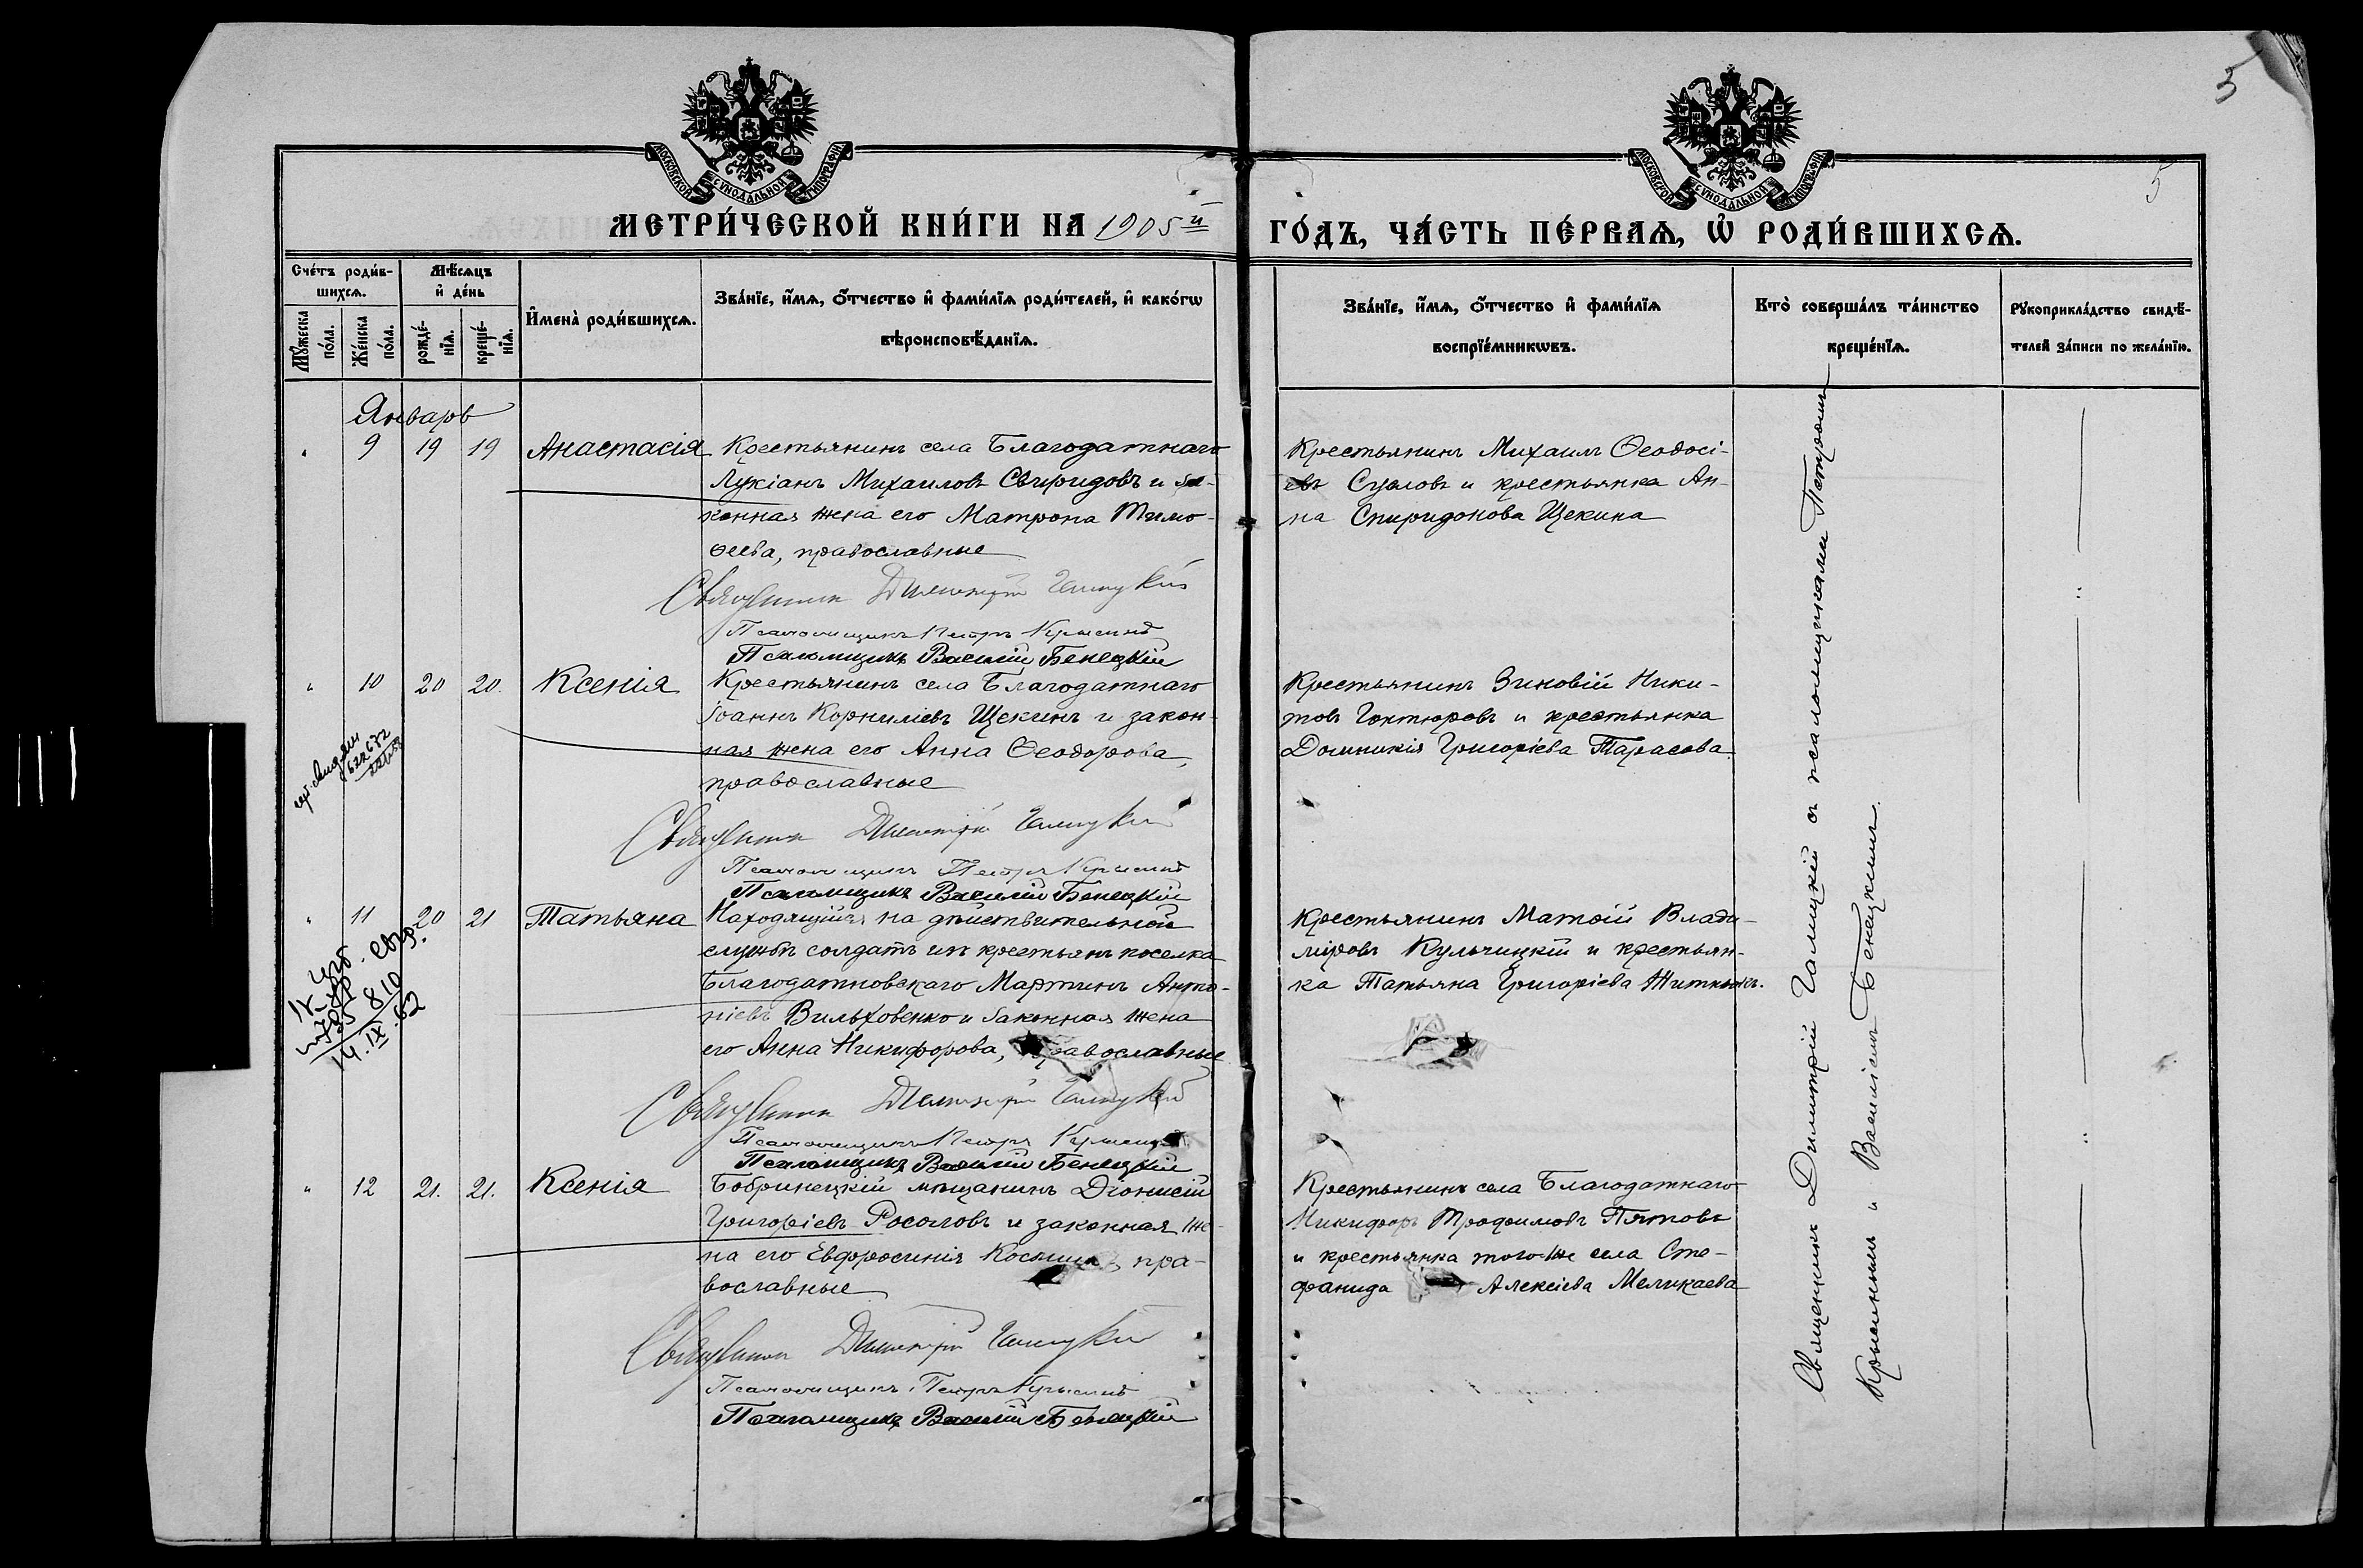 МОСКОВСКОЙ СѴНОДАЛЬНОЙ ТИПОГРАФІИ
МОСКОВСКОЙ СѴНОДАЛЬНОЙ ТИПОГРАФІИ
5
5
МЕТРИ́ЧЕСКОЙ КНИ́ГИ НА 1905й
ГО́ДЪ, ЧА́СТЬ ПЕ́РВАѦ, Ѡ҆ РОДИ́ВШИХСѦ.
Сче́тъ роди́в-
шихсѧ.
Мѣ́сѧцъ
и҆ де́нь
Мꙋ́жеска по́ла.
Же́нска по́ла.
рожде́-нїѧ.
креще́-нїѧ.
И҆мена̀ роди́вшихсѧ.
Зва́нїе, и҆́мѧ, ѻ҆́тчество и҆ фами́лїѧ роди́телей, и҆ како́гѡ
вѣроисповѣ́данїѧ.
Зва́нїе, и҆́мѧ, ѻ҆́тчество и҆ фами́лїѧ
воспрїе́мникѡвъ.
Кто̀ соверша́лъ та́инство
креще́нїѧ.
Рꙋкоприкла́дство свидѣ́-
телей за́писи по жела́нїю.
Январь
" 9 19 19 Анастасія
Крестьянинъ села Благодатнаго
Лукіанъ Михаиловъ Свиридовъ и за-
конная жена его Матрона Тимо-
ѳеева, православные
Священникъ Димитрій Галицкій
Псаломщикъ Петръ Крысинъ
Псаломщикъ Василій Бенецкій
Крестьянинъ Михаилъ Ѳеодосі-
евъ Сусловъ и крестьянка Ан-
на Спиридонова Щекина
" 10 20 20. Ксенія
Крестьянинъ села Благодатнаго
Іоаннъ Корниліевъ Щекинъ и закон-
ная жена его Анна Ѳеодорова,
православные
Священникъ Димитрій Галицкій
Псаломщикъ Петръ Крысинъ
Псаломщикъ Василій Бенецкій
Крестьянинъ Зиновій Ники-
товъ Гонтюровъ и крестьянка
Домникія Григоріева Тарасова.
" 11 20 21 Татьяна
Находящійся на дѣйствительной
службѣ солдатъ изъ крестьянъ поселка
Благодатновскаго Мартинъ Анто-
ніевъ Вильховенко и законная жена
его Анна Никифорова, православные
Священникъ Димитрій Галицкій
Псаломщикъ Петръ Крысинъ
Псаломщикъ Василій Бенецкій
Крестьянинъ Матѳій Влади-
міровъ Кульчицкій и крестьян-
ка Татьяна Григоріева Житникъ.
14.IX.62
" 12 21. 21. Ксенія
Бобринецкій мѣщанинъ Діонисій
Григоріевъ Росоловъ и законная же-
на его Евфросинія Косьмина, пра-
вославные
Священникъ Димитрій Галицкій
Псаломщикъ Петръ Крысинъ
Псаломщикъ Василій Бенецкій
Крестьянинъ села Благодатнаго
Никифоръ Трофимовъ Пятовъ
и крестьянка того-же села Сте-
фанида Алексіева Меликаева
Священникъ Димитрій Галицкій съ псаломщиками Петромъ
Крысинымъ и Василіемъ Бенецкимъ.